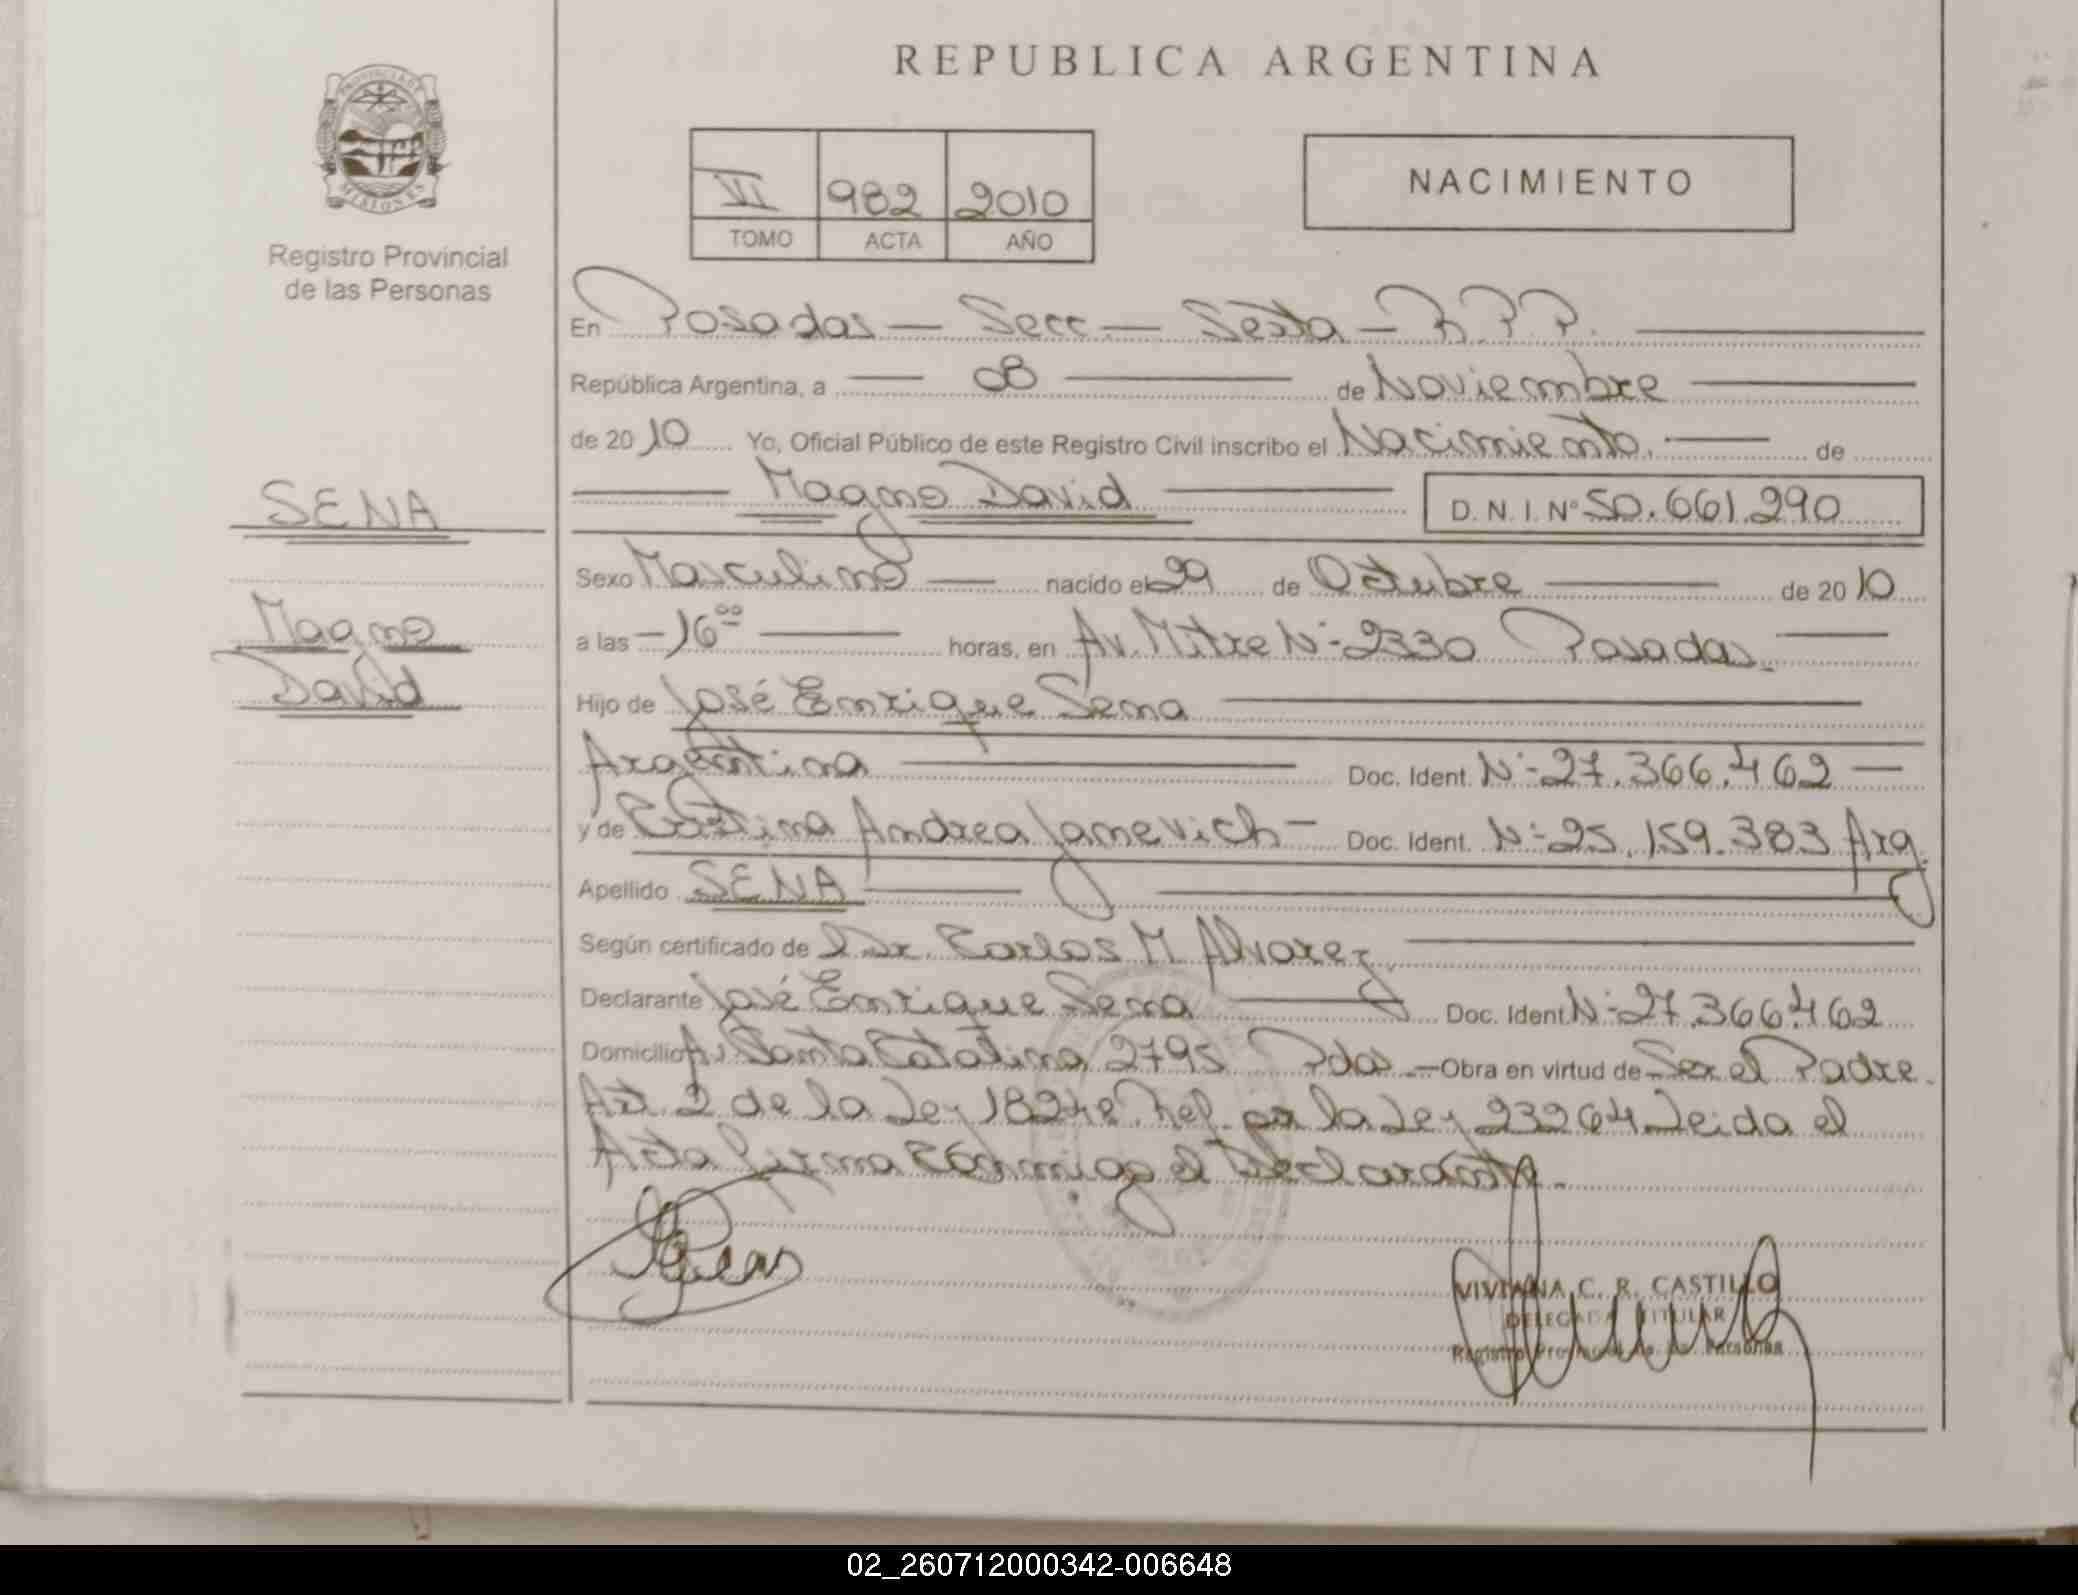 REPUBLICA ARGENTINA
PROVINCIA DE
MISIONES
Registro Provincial
de las Personas
VI 982 2010
TOMO ACTA AÑO
NACIMIENTO
En Posadas — Secc. — Sexta — R.P.P.
República Argentina, a — 08 — de Noviembre
de 2010 Yo, Oficial Público de este Registro Civil inscribo el Nacimiento. — de
— Magno David — D.N.I. Nº 50.661.290
SENA
Magno
David
Sexo Masculino — nacido el 29 de Octubre — de 2010
a las — 16 00 — horas, en Av. Mitre Nº 2330 Posadas. —
Hijo de José Enrique Sena
Argentina — Doc. Ident. Nº 27.366.462 —
y de Cristina Andrea Janevich — Doc. Ident. Nº 25.159.383 Arg.
Apellido SENA
Según certificado de l Dr. Carlos M. Alvarez
Declarante José Enrique Sena — Doc. Ident. Nº 27.366.462
Domicilio Av. Santa Catalina 2795 Pdas. — Obra en virtud de Ser el Padre.
Art. 2 de la Ley 18248. Ref. por la Ley 23264 Leida el
Acta firma Conmigo el Declarante.
VIVIANA C. R. CASTILLO
DELEGADA TITULAR
Registro Provincial de las Personas
02_260712000342-006648